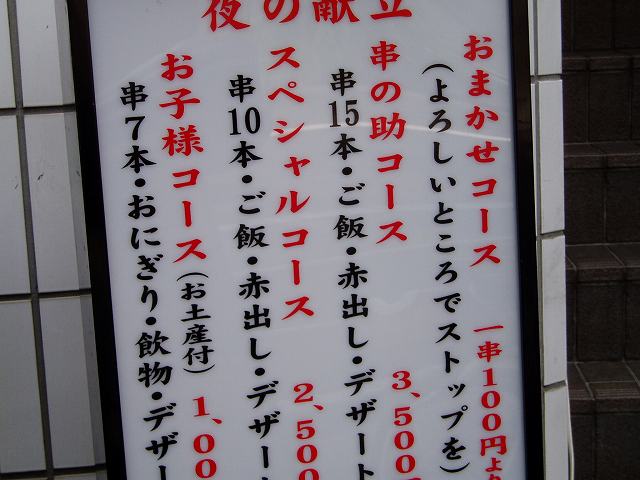 夜の献立
おまかせコース 一串100円より
(よろしいところでストップを)
串の助コース 3,500
串15本・ご飯・赤出し・デザート
スペシャルコース 2,500
串10本・ご飯・赤出し・デザート
お子様コース(お土産付) 1,00
串7本・おにぎり・飲物・デザー